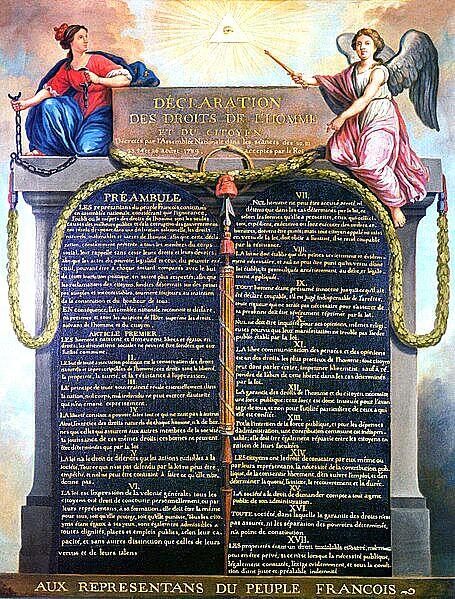 DÉCLARATION
DES DROITS DE L'HOMME
ET DU CITOYEN
Décrétés par l'Assemblée Nationale dans les séances des 20, 21
23, 24 et 26 août 1789, Acceptés par le Roi
PRÉAMBULE
LES représentans du peuple François, constitués
en assemblée nationale, considérant que l'ignorance,
l'oubli ou le mépris des droits de l'homme sont les seules
ARTICLE PREMIER
LES hommes naissent et demeurent libres et égaux en
droits, les distinctions sociales ne peuvent être fondées que sur
l'utilité commune.
II.
LE but de toute association politique est la conservation des droits
naturels et imprescriptibles de l'homme; ces droits sont la liberté,
la propriété, la sureté, et la résistance à l'oppression.
III.
LE principe de toute souveraineté réside essentiellement dans
la nation, nul corps, nul individu ne peut exercer d'autorité
qui n'en emane expressément.
IV.
LA liberté consiste à pouvoir faire tout ce qui ne nuit pas à autrui
Ainsi, l'exercice des droits naturels de chaque homme, n'a de bor-
nes que celles qui assurent aux autres membres de la société
la jouissance de ces mêmes droits; ces bornes ne peuvent
être déterminées que par la loi
V.
LA loi n'a le droit de défendre que les actions nuisibles à la
société. Tout ce qui n'est pas défendu par la loi ne peut être
empêché, et nul ne peut être contraint à faire ce qu'elle n'or-
donne pas.
VI.
LA loi est l'expression de la volonté générale; tous les
citoyens ont droit de concourir personnellement, ou par
leurs représentans, à sa formation; elle doit être la même
pour tous, soit qu'elle protege, soit qu'elle punisse. Tous les cito-
yens étant égaux à ses yeux, sont également admissibles à
toutes dignités, places et emplois publics, selon leur ca-
pacité, et sans autres distinction que celles de leurs
vertus et de leurs talens
VII.
NUL homme ne peut être accusé, arreté ni
détenu que dans les cas déterminés par la loi, et
selon les formes qu'elle a prescrites, ceux qui sollici-
tent, expédient, exécutent ou font exécuter des ordres ar-
bitraires, doivent être punis; mais tout citoyen appelé ou saisi
en vertu de la loi, doit obéir à l'instant, il se rend coupable
par la résistance.
VIII.
LA loi ne doit établir que des peines strictement et évidem-
ment nécessaires, et nul ne peut être puni qu'en vertu d'une
loi établie et promulguée antérieurement au délit, et légale-
ment appliquée.
IX.
TOUT homme étant présumé innocent jusqu'à ce qu'il ait
été déclaré coupable, s'il est jugé indispensable de l'arrêter,
toute rigueur qui ne serait pas nécessaire pour s'assurer de sa
personne doit être sévérement réprimée par la loi.
X.
NUL ne doit être inquiété pour ses opinions, mêmes religi-
euses pourvu que leur manifestation ne trouble pas l'ordre
public établi par la loi.
XI.
LA libre communication des pensées et des opinions
est un des droits les plus precieux de l'homme; tout citoyen
peut donc parler, écrire, imprimer librement, sauf à ré-
pondre de l'abus de cette liberté dans les cas déterminés
par la loi.
XII.
LA garantie des droits de l'homme et du citoyen nécessite
une force publique; cette force est donc instituée pour l'avan-
tage de tous, et non pour l'utilité particulière de ceux à qui
elle est confiée.
XIII.
Pour l'entretien de la force publique, et pour les dépenses
d'administration, une contribution commune est indispen-
sable; elle doit être également répartie entre les citoyens en
raison de leurs facultés.
XIV.
LES citoyens ont le droit de constater par eux même ou
par leurs représentans, la nécessité de la contribution pub-
lique, de la consentir librement, d'en suivre l'emploi, et d'en
déterminer la quotité, l'assiette, le recouvrement et la durée.
XV.
LA société a le droit de demander compte à tout agent
public de son administration.
XVI.
TOUTE société, dans laquelle la garantie des droits n'est
pas assurée, ni les séparation des pouvoirs déterminée,
n'a point de constitution.
XVII.
LES propriétés étant un droit inviolable et sacré, nul ne
peut en être privé, si ce n'est lorsque la nécessité publique,
légalement constatée, l'exige évidemment, et sous la condi-
tion d'une juste et préalable indemnité.
AUX REPRESENTANS DU PEUPLE FRANCOIS